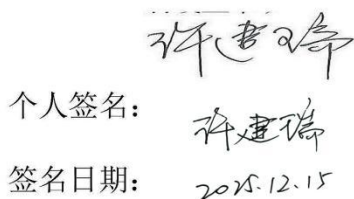 许建瑞
个人签名: 许建瑞
签名日期: 2025.12.15